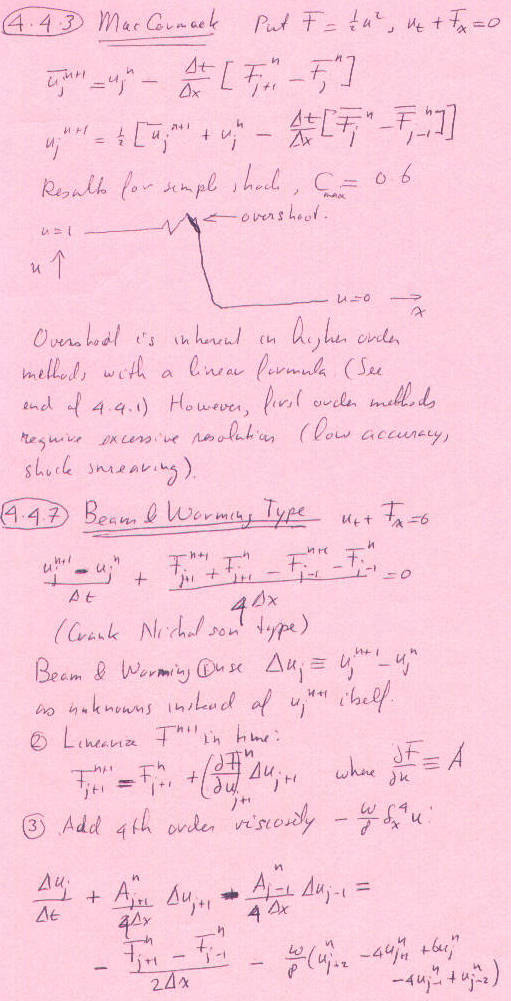 4.4.3 MacCormack Put F = ½u², u_t + F_x = 0
ū_j^{n+1} = u_j^n − Δt/Δx [F_{j+1}^n − F_j^n]
u_j^{n+1} = ½[ū_j^{n+1} + u_j^n − Δt/Δx [F̄_j^n − F̄_{j-1}^n]]
Results for simple shock, C_max = 0.6
overshoot.
u=1
u ↑
u=0 →
x
Overshoot is inherent in higher order
methods with a linear formula (See
end of 4.4.1) However, first order methods
require excessive resolution (low accuracy,
shock smearing).
4.4.7 Beam & Warming Type u_t + F_x = 0
(u_j^{n+1} − u_j^n)/Δt + (F_{j+1}^{n+1} + F_{j+1}^n − F_{j-1}^{n+1} − F_{j-1}^n)/(4Δx) = 0
(Crank Nicholson type)
Beam & Warming ① use Δu_j ≡ u_j^{n+1} − u_j^n
as unknowns instead of u_j^{n+1} itself.
② Linearize F^{n+1} in time:
F_{j+1}^{n+1} = F_{j+1}^n + (∂F/∂u)_{j+1}^n Δu_{j+1} where ∂F/∂u ≡ A
③ Add 4th order viscosity − ω/8 δ_x^4 u:
Δu_j/Δt + A_{j+1}^n/(4Δx) Δu_{j+1} − A_{j-1}^n/(4Δx) Δu_{j-1} =
− (F_{j+1}^n − F_{j-1}^n)/(2Δx) − ω/8 (u_{j+2}^n − 4u_{j+1}^n + 6u_j^n
− 4u_{j-1}^n + u_{j-2}^n)